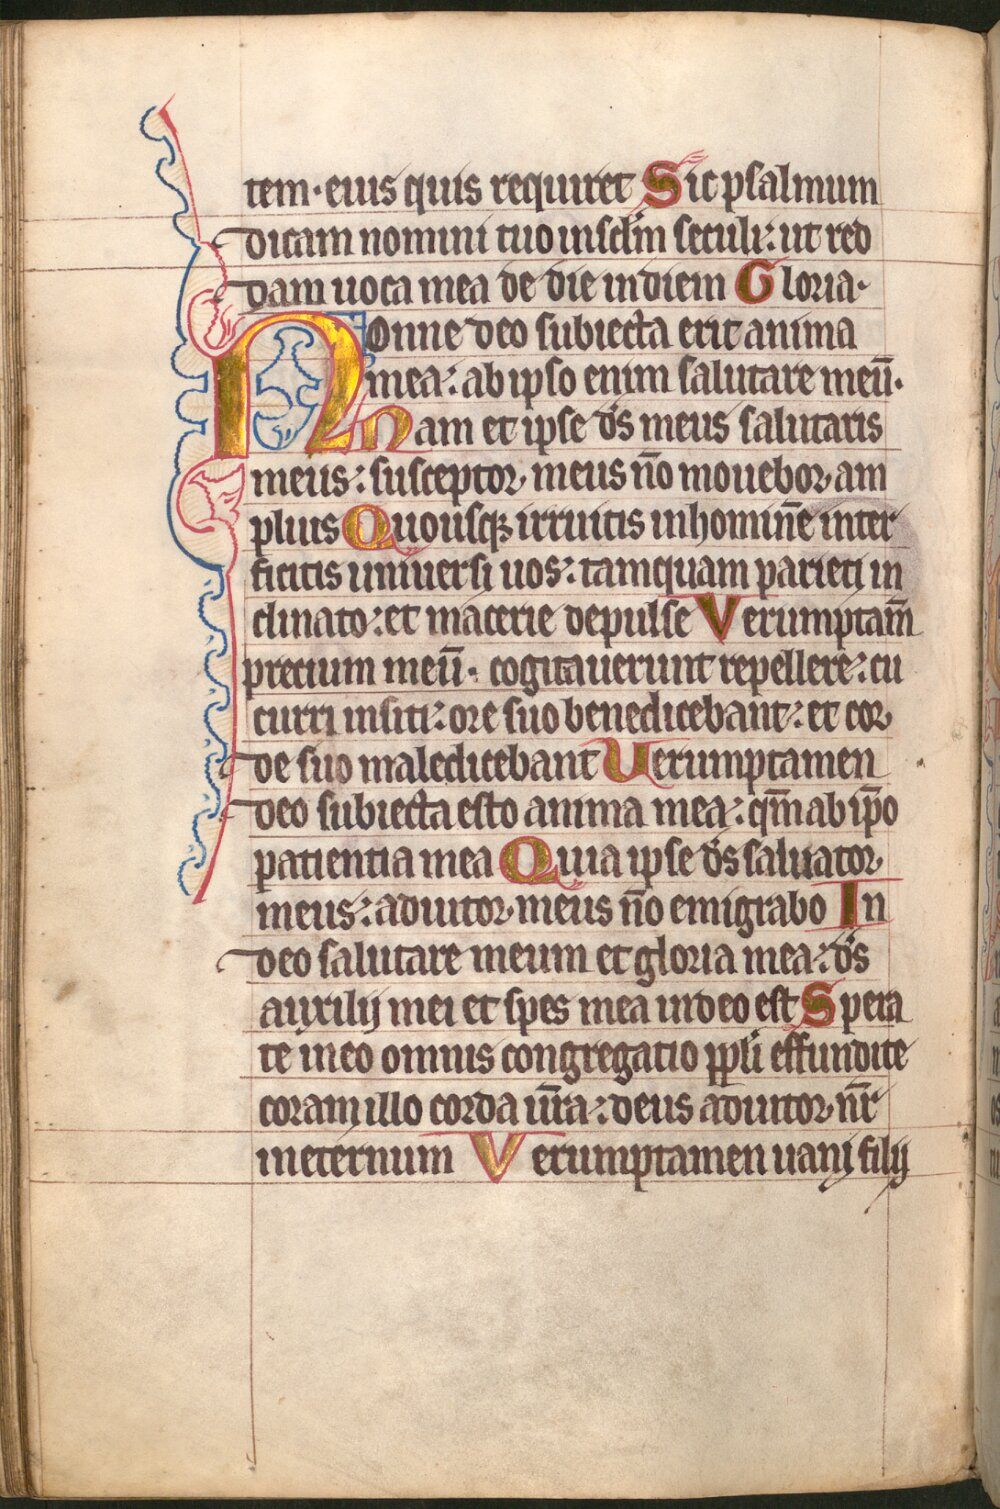 tem· eius quis requiret Sic psalmum
dicam nomini tuo in sclm̄ seculi: ut red
dam uota mea de die in diem Gloria·
Nonne deo subiecta erit anima
mea: ab ipso enim salutare meū·
Nam et ipse ds̄ meus salutaris
meus: susceptor meus nō mouebor am
plius Quousq; irruitis in hominē inter
ficitis uniuersi uos: tamquam parieti in
clinato: et macerie depulse Verumptam̄
precium meū· cogitauerunt repellere: cu
curri in siti: ore suo benedicebant: et cor
de suo maledicebant Uerumptamen
deo subiecta esto anima mea: qm̄ ab ip̄o
patientia mea Quia ipse ds̄ saluator
meus: adiutor meus nō emigrabo In
deo salutare meum et gloria mea: ds̄
auxilij mei et spes mea in deo est Spera
te in eo omnis congregatio ppl̄i effundite
coram illo corda ūra: deus adiutor nr̄
in eternum Verumptamen uani filij